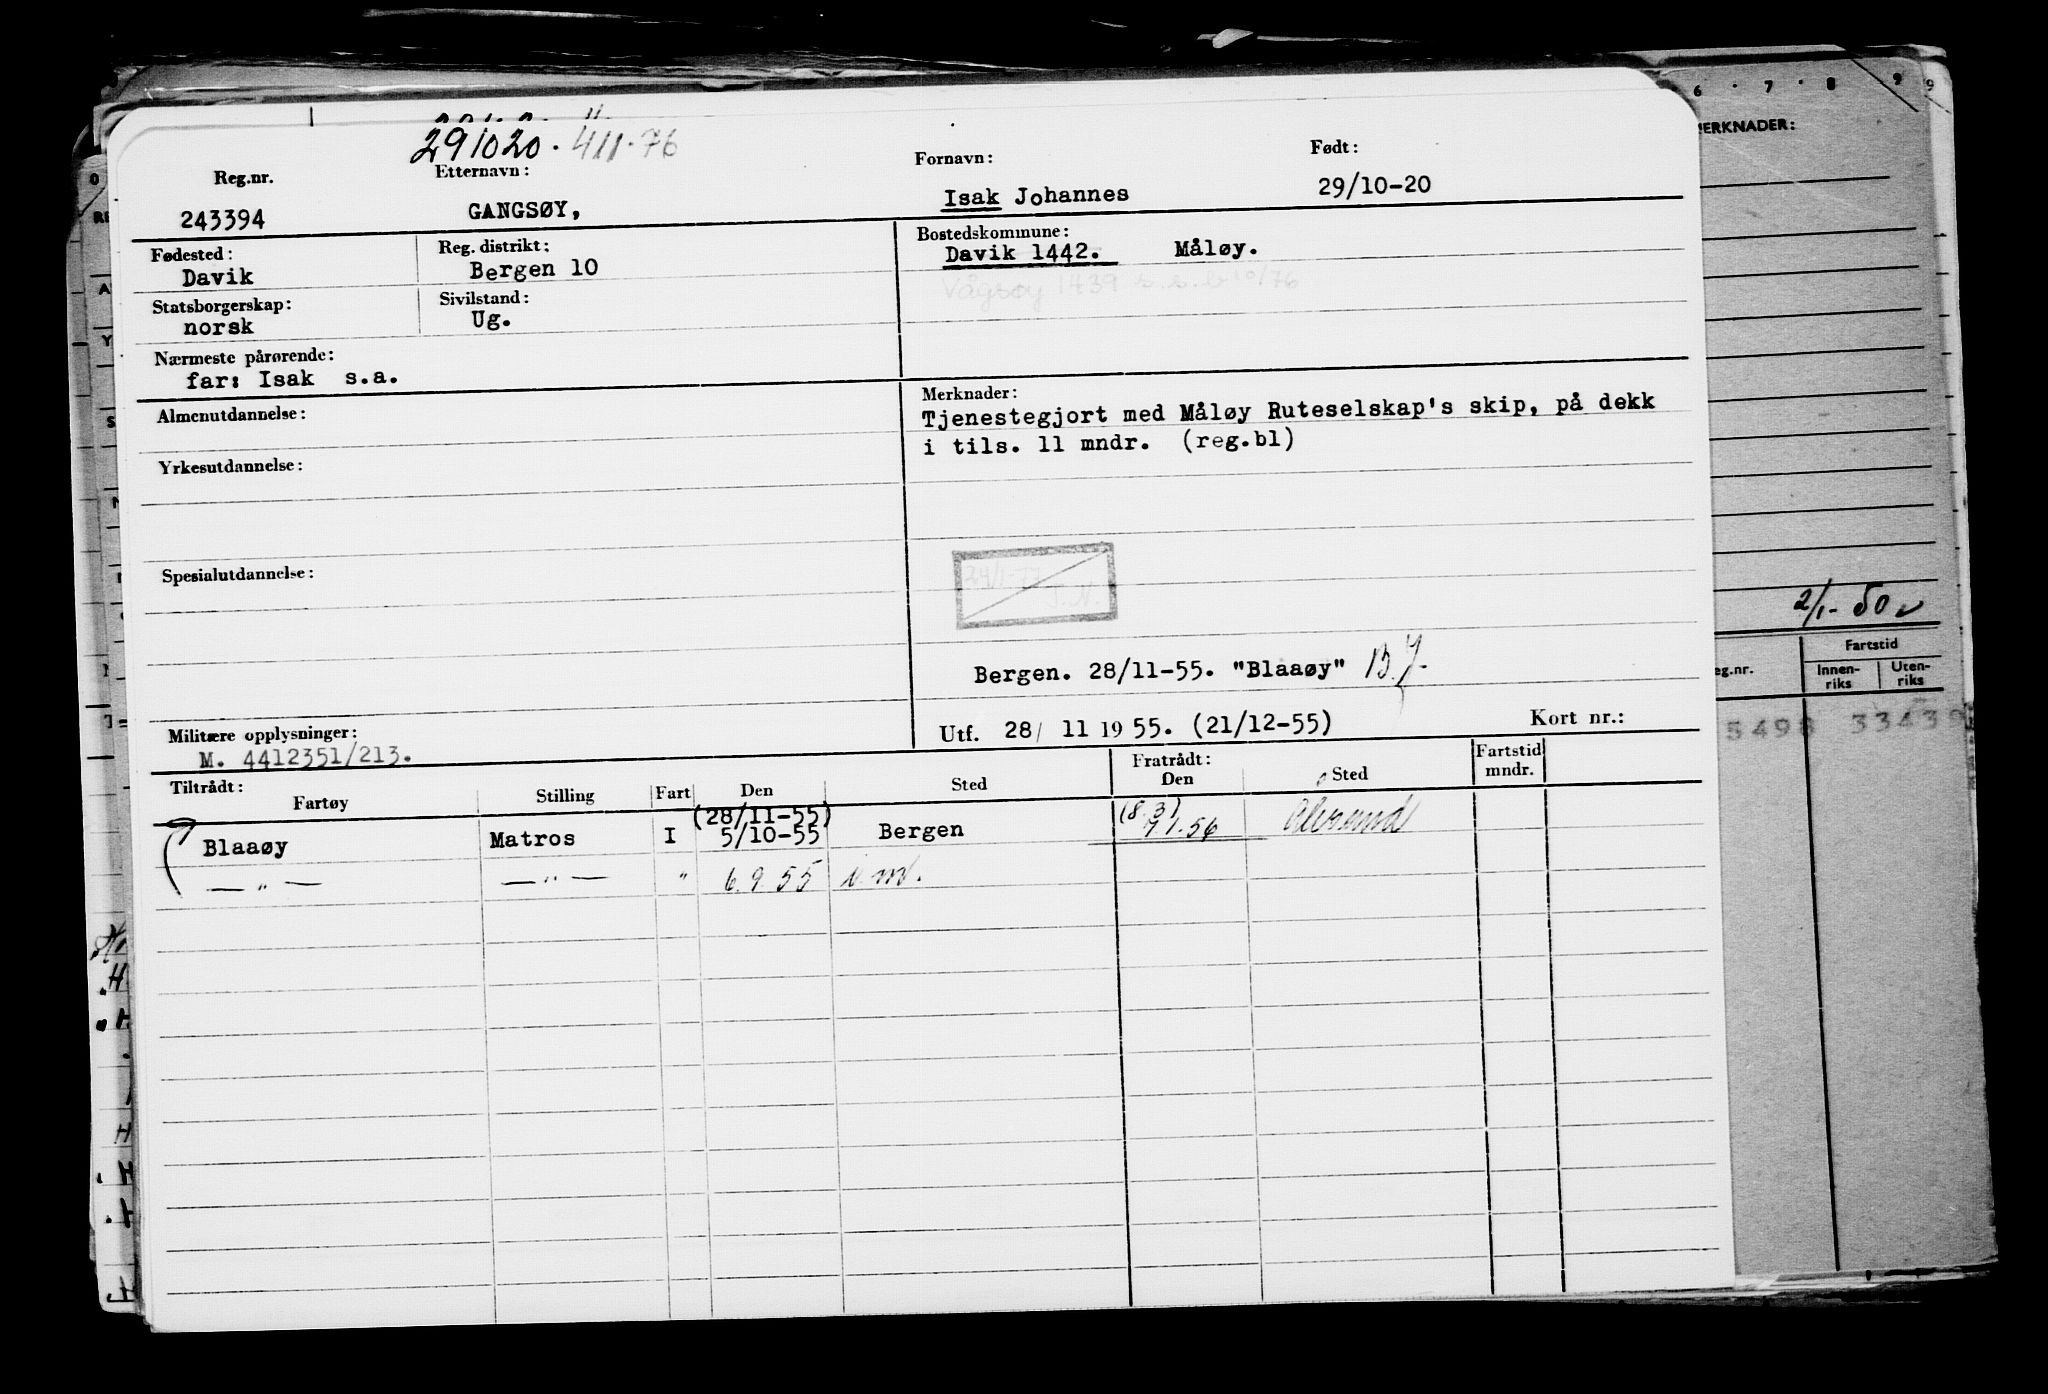 291020. 411.76
Reg.nr. Etternavn: Fornavn: Født:
243394 GANGSØY, Isak Johannes 29/10-20
Fødested: Reg. distrikt: Bostedskommune:
Davik Bergen 10 Davik 1442. Måløy.
Vågsøy 1439 s.s.b 10/76
Statsborgerskap: Sivilstand:
norsk Ug.
Nærmeste pårørende:
far: Isak s.a.
Almenutdannelse:
Yrkesutdannelse:
Spesialutdannelse:
Merknader:
Tjenestegjort med Måløy Ruteselskap's skip, på dekk
i tils. 11 mndr. (reg.bl)
24/1-77
T.N.
Bergen. 28/11-55. "Blaaøy"
Utf. 28/ 11 1955. (21/12-55) Kort nr.:
Militære opplysninger:
M. 4412351/213.
Tiltrådt: Fratrådt: Fartstid
Fartøy Stilling Fart Den Sted Den Sted mndr.
(28/11-55) (8.3)
Blaaøy Matros I 5/10-55 Bergen 7/1.56 Ålesund
— " — — " — " 6.9.55
6 · 7 · 8 9 9
MERKNADER:
2/1-50
eg.nr. Fartstid
Innen-riks Uten-riks
5498 33439